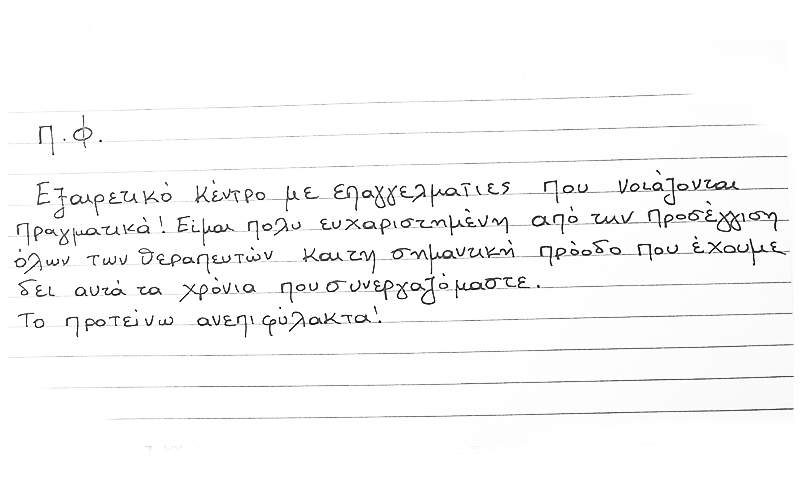 Π.Φ.
Εξαιρετικό κέντρο με επαγγελματίες που νοιάζονται
πραγματικά! Είμαι πολυ ευχαριστημένη από την προσέγγιση
όλων των θεραπευτών και τη σημαντική πρόοδο που έχουμε
δει αυτά τα χρόνια που συνεργαζόμαστε.
Το προτείνω ανεπιφύλακτα!